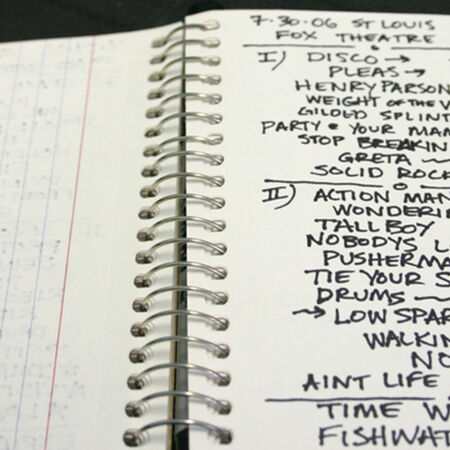 7.30.06 ST LOUIS
FOX THEATRE
I) DISCO →
PLEAS →
HENRY PARSON
WEIGHT OF THE W
GILDED SPLINT
PARTY @ YOUR MAM
STOP BREAKIN
GRETA ~
SOLID ROCK
II) ACTION MAN
WONDERIN
TALL BOY
NOBODYS L
PUSHERMA
TIE YOUR S
DRUMS ~
→ LOW SPAR
WALKIN
NO
AINT LIFE
TIME W
FISHWAT